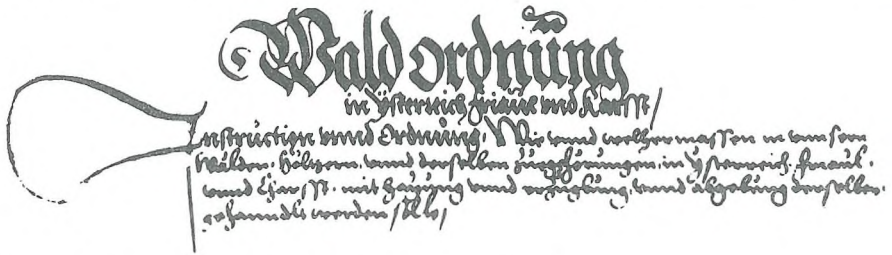 Wald ordnŭng
in Ysterreich friaul vnd Karsst /
Instruction vnnd Ordnŭng. Wie vnnd welcher massen in vnnsern
Wälden, Höltzern, vnnd derselben Zŭgehörŭngen, in Ysterreich, friaul,
vnnd Kharsst, mit haÿŭng vnnd erzuglŭng, vnnd abgebŭng derselben
gehanndlt werden solle /